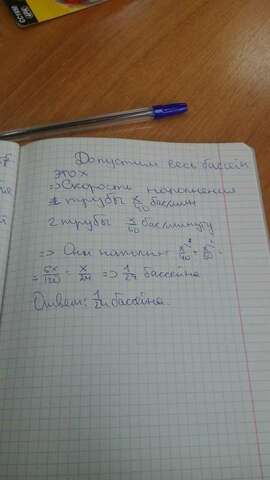 Допустим весь бассейн
это x
=> Скорость наполнения
1 трубы x/40 басмин
2 трубы x/60 басминуту
=> Они наполнят x/40 + x/60 =
= 5x/120 = x/24 => 1/24 бассейна
Ответ: 1/24 бассейна.